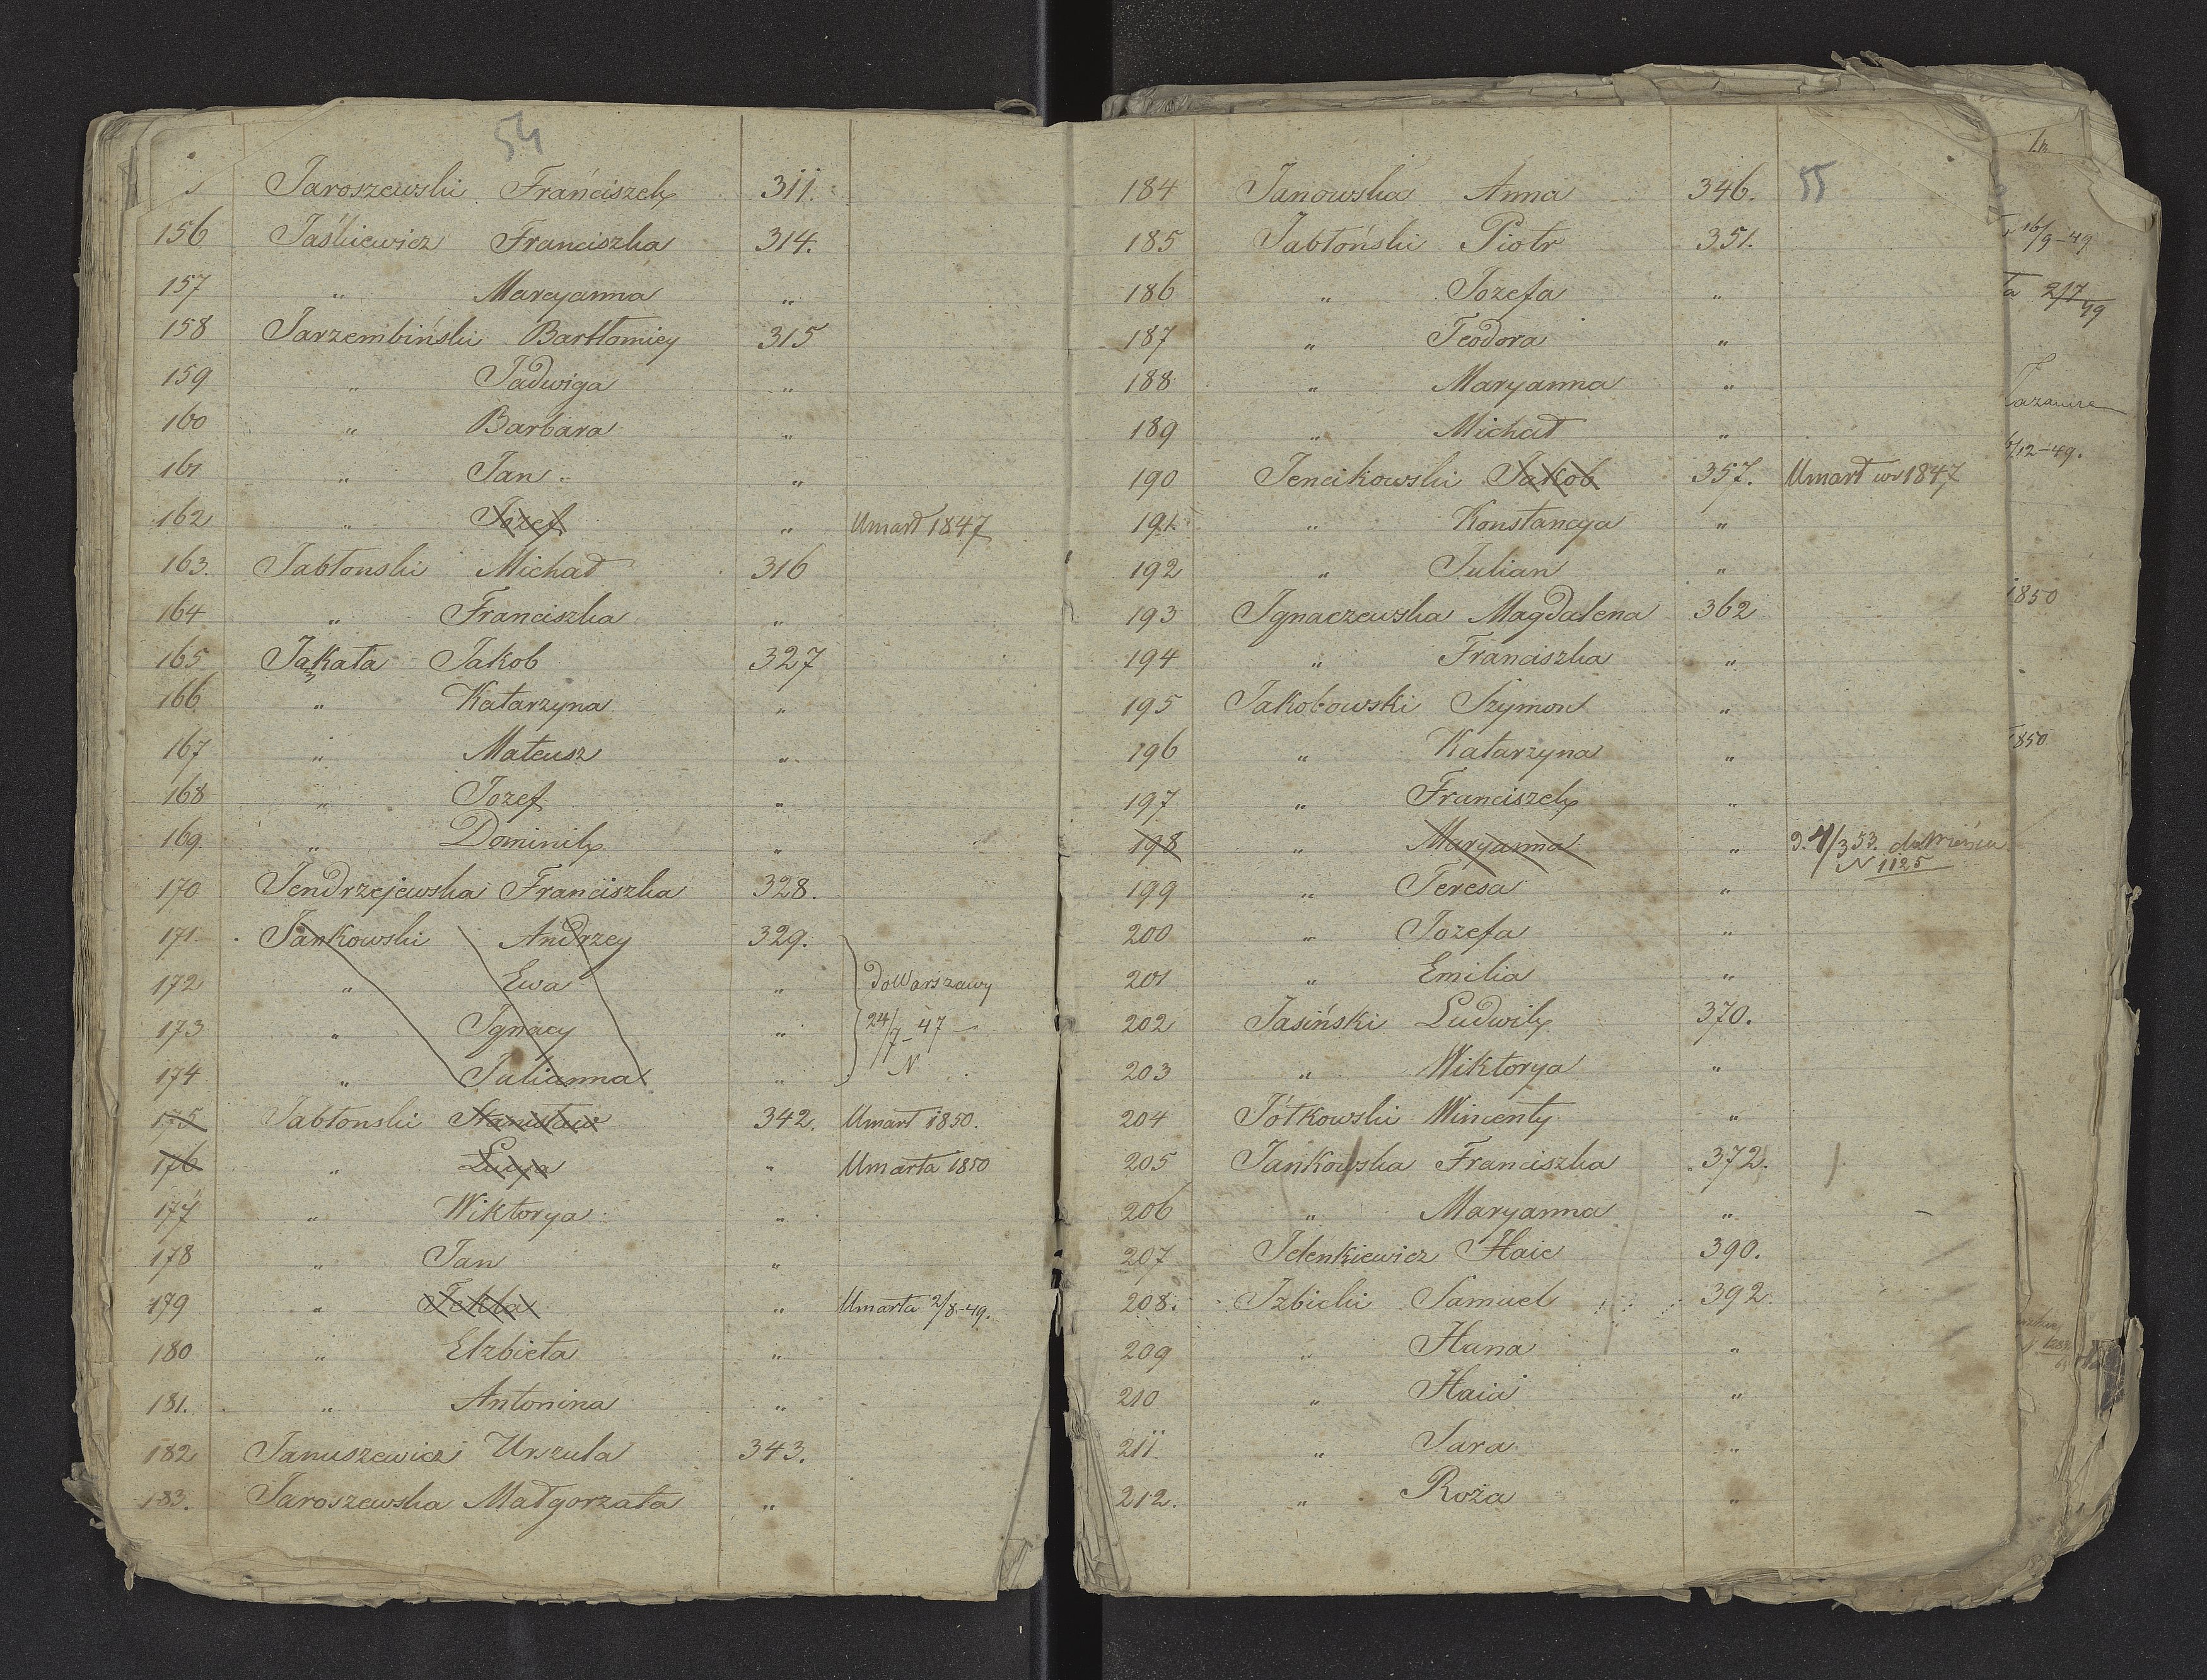 54
Jaroszewski Franciszek 311.
156 Jaśkiewicz Franciszka 314.
157 " Maryanna "
158 Jarzembiński Bartłomiey 315
159 " Jadwiga "
160 " Barbara "
161 " Jan "
162 " Jozef " Umarł 1847
163. Jabłonski Michał 316
164 " Franciszka "
165 Jakata Jakob 327
166 " Katarzyna "
167 " Mateusz "
168 " Jozef "
169. " Dominik "
170 Jendrzejewska Franciszka 328.
171. Jankowski Andrzey 329.
172 " Ewa " do Warszawy
173 " Ignacy " 24/7 - 47
174 " Julianna " N
175 Jabłonski Stanisław 342. Umarł 1850.
176 " Lucya " Umarła 1850
177 " Wiktorya "
178 " Jan "
179 " Tekla " Umarła 2/8-49.
180 " Elzbieta "
181. " Antonina "
182 Januszewicz Urszula 343.
183. Jaroszewska Małgorzata "
55
184 Janowska Anna 346.
185 Jabłoński Piotr 351.
186 " Jozefa "
187 " Teodora "
188 " Maryanna "
189 " Michał "
190 Jencikowski Jakob 357. Umarł w 1847
191. " Konstancya "
192 " Julian "
193 Ignaczewska Magdalena 362
194 " Franciszka "
195 Jakobowski Szymon "
196 " Katarzyna "
197 " Franciszek "
198 " Maryanna " d. 4/3 53.
N 1125
199 " Teresa "
200 " Jozefa "
201 " Emilia "
202 Jasiński Ludwik 370.
203 " Wiktorya "
204 Jótkowski Wincenty "
205 Jankowska Franciszka 372.
206 " Maryanna "
207 Jelenkiewicz Haie 390.
208. Izbicki Samuel 392.
209 " Hana "
210 " Haia "
211 " Sara "
212. " Roża "
16/9-49
2/7 49
12-49.
1850
1850